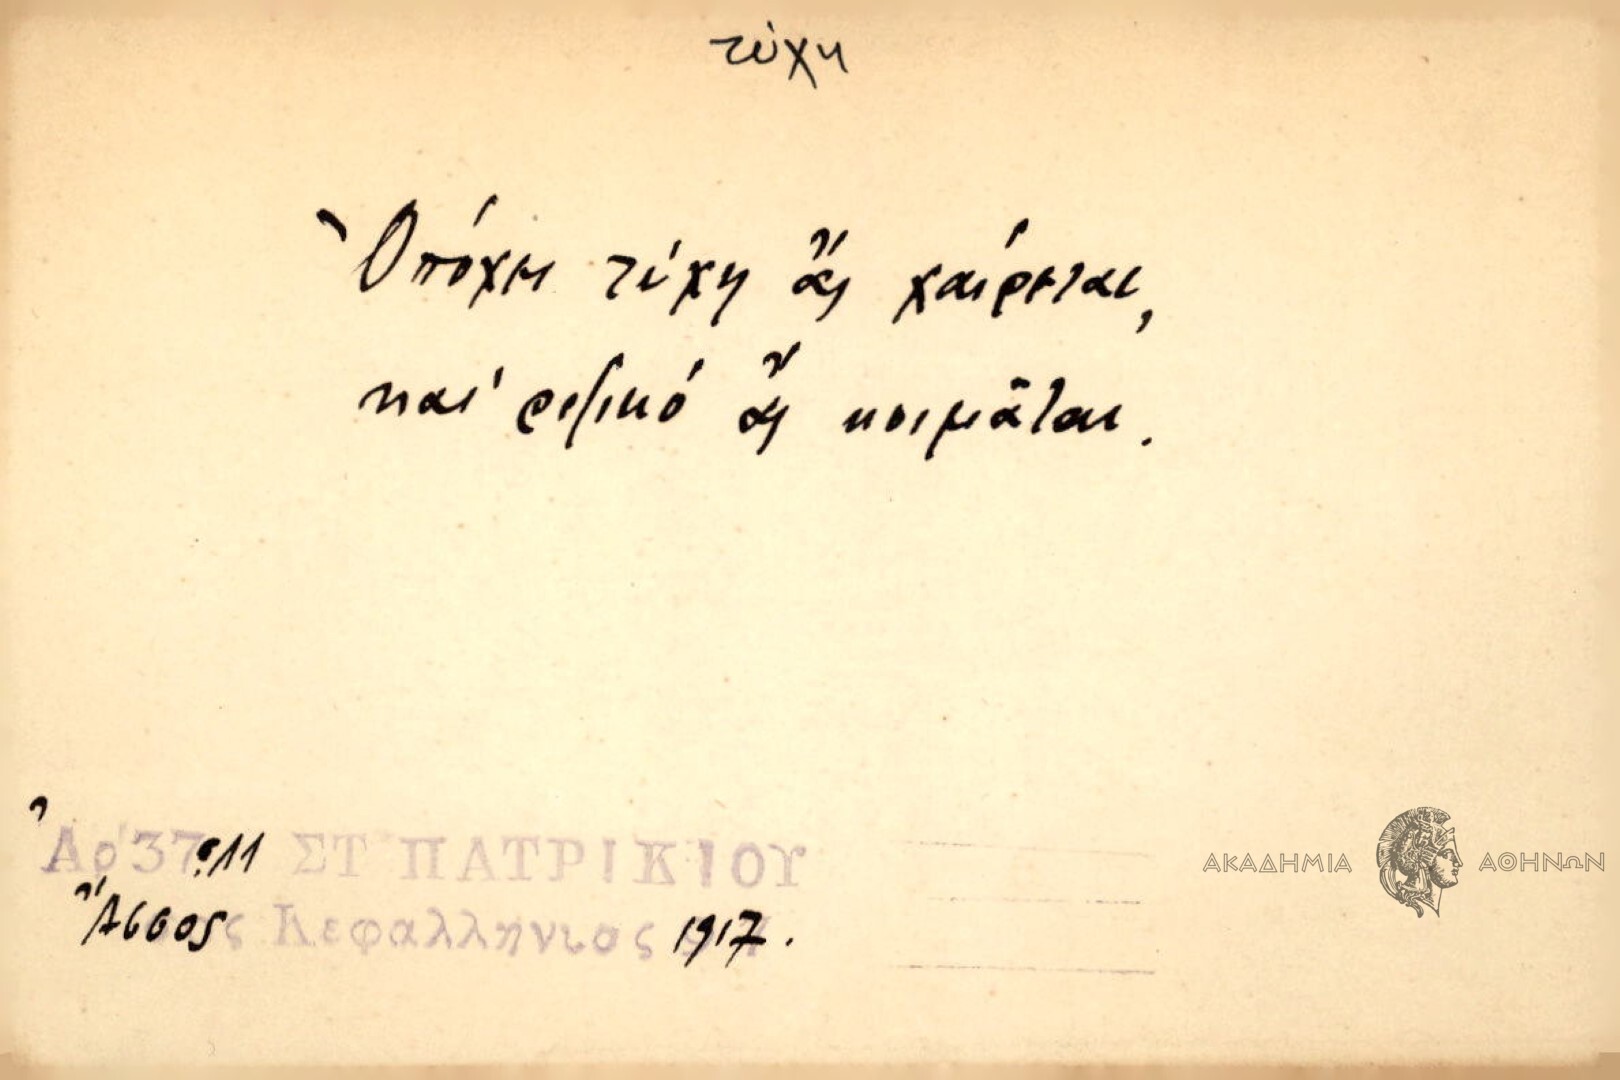 τύχη
Ὁπόχει τύχη ἄς χαίρεται,
καί ριζικό ἄς κοιμᾶται.
Ἀρ 37 ΣΤ ΠΑΤΡΙΚΙΟΥ
Ἄσσος Κεφαλληνίας 1917.
ΑΚΑΔΗΜΙΑ ΑΘΗΝΩΝ